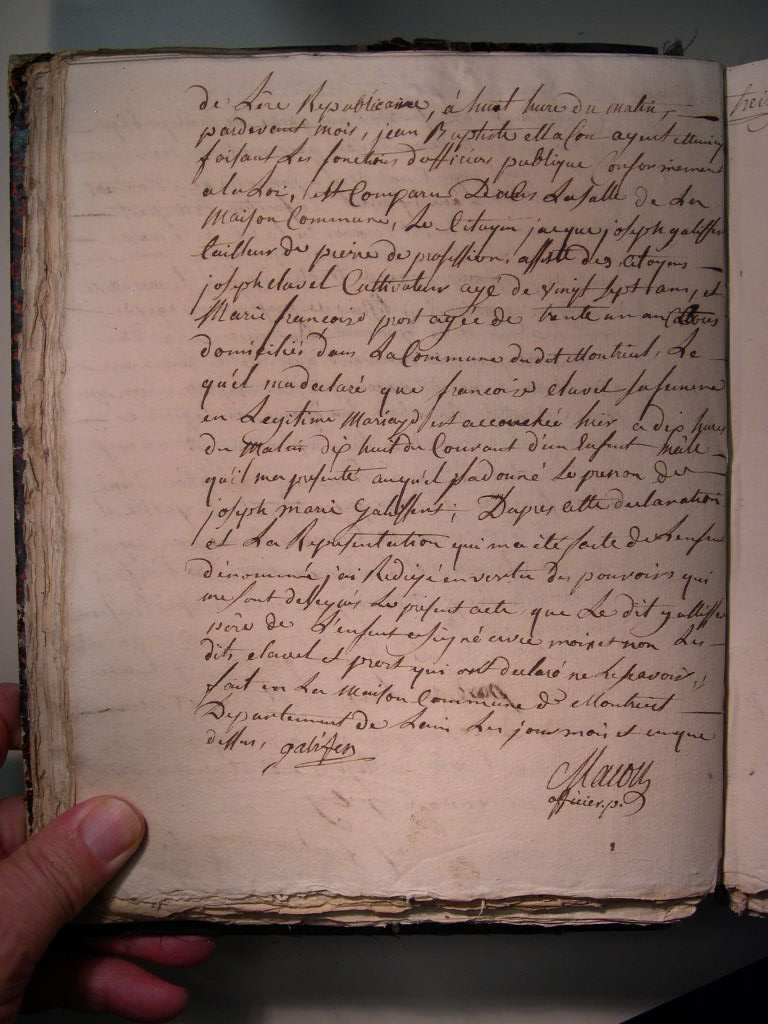 de Lêre Republicaine, á huit hure du matin,
pardevant mois, jean Baptiste Macon agent Munici
faisant Les fonctions d'officier publique Conformement
a la Loi, est Comparu Dans La Salle de La
Maison Commune, Le Citoyen jacque joseph galiffe
tailleur de pierre de profession, assisté des Citoyens
joseph clavel Cultivateur agé de vingt sept ans, et
Marie francoise prost agée de trente un an
domiciliés Dans La Commune du dit Montreul, Le
quel m'a declaré que francoise clavel sa femme
en Legitime Mariage est accouchée hier a dix hures
du Matin dix huit du Courant d'un Enfent mâle
qu'il m'a presenté auquel il a donné Le prenon de
joseph marie galiffent; D'apres cette declaration
et La Representation qui m'a été faite de L'enfen
dénommé j'ai Redigé en vertu des pouvoirs qui
me sont delegués Le present acte que Le dit galiffe
pere de L'enfent a signé avec mois et non Les
dits clavel et prost qui ont declaré ne le scavoir;
fait en La Maison Commune de Montreul
Departement de Lain Les jour mois et an que
dessus, galiffen
Macon
officier.p.